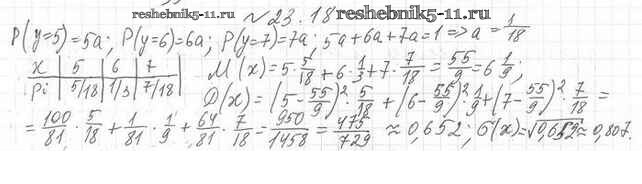 reshebnik5-11.ru reshebnik5-11.ru
№23.18
P(y=5)=5a; P(y=6)=6a; P(y=7)=7a; 5a+6a+7a=1 => a = 1/18
x | 5 | 6 | 7
pi | 5/18 | 1/3 | 7/18
M(x)=5·5/18+6·1/3+7·7/18=55/9=6 1/9;
D(x)=(5-55/9)²·5/18+(6-55/9)²·1/9+(7-55/9)²·7/18=
=100/81·5/18+1/81·1/9+64/81·7/18=950/1458=475/729≈0,652; σ(x)=√0,652≈0,807.